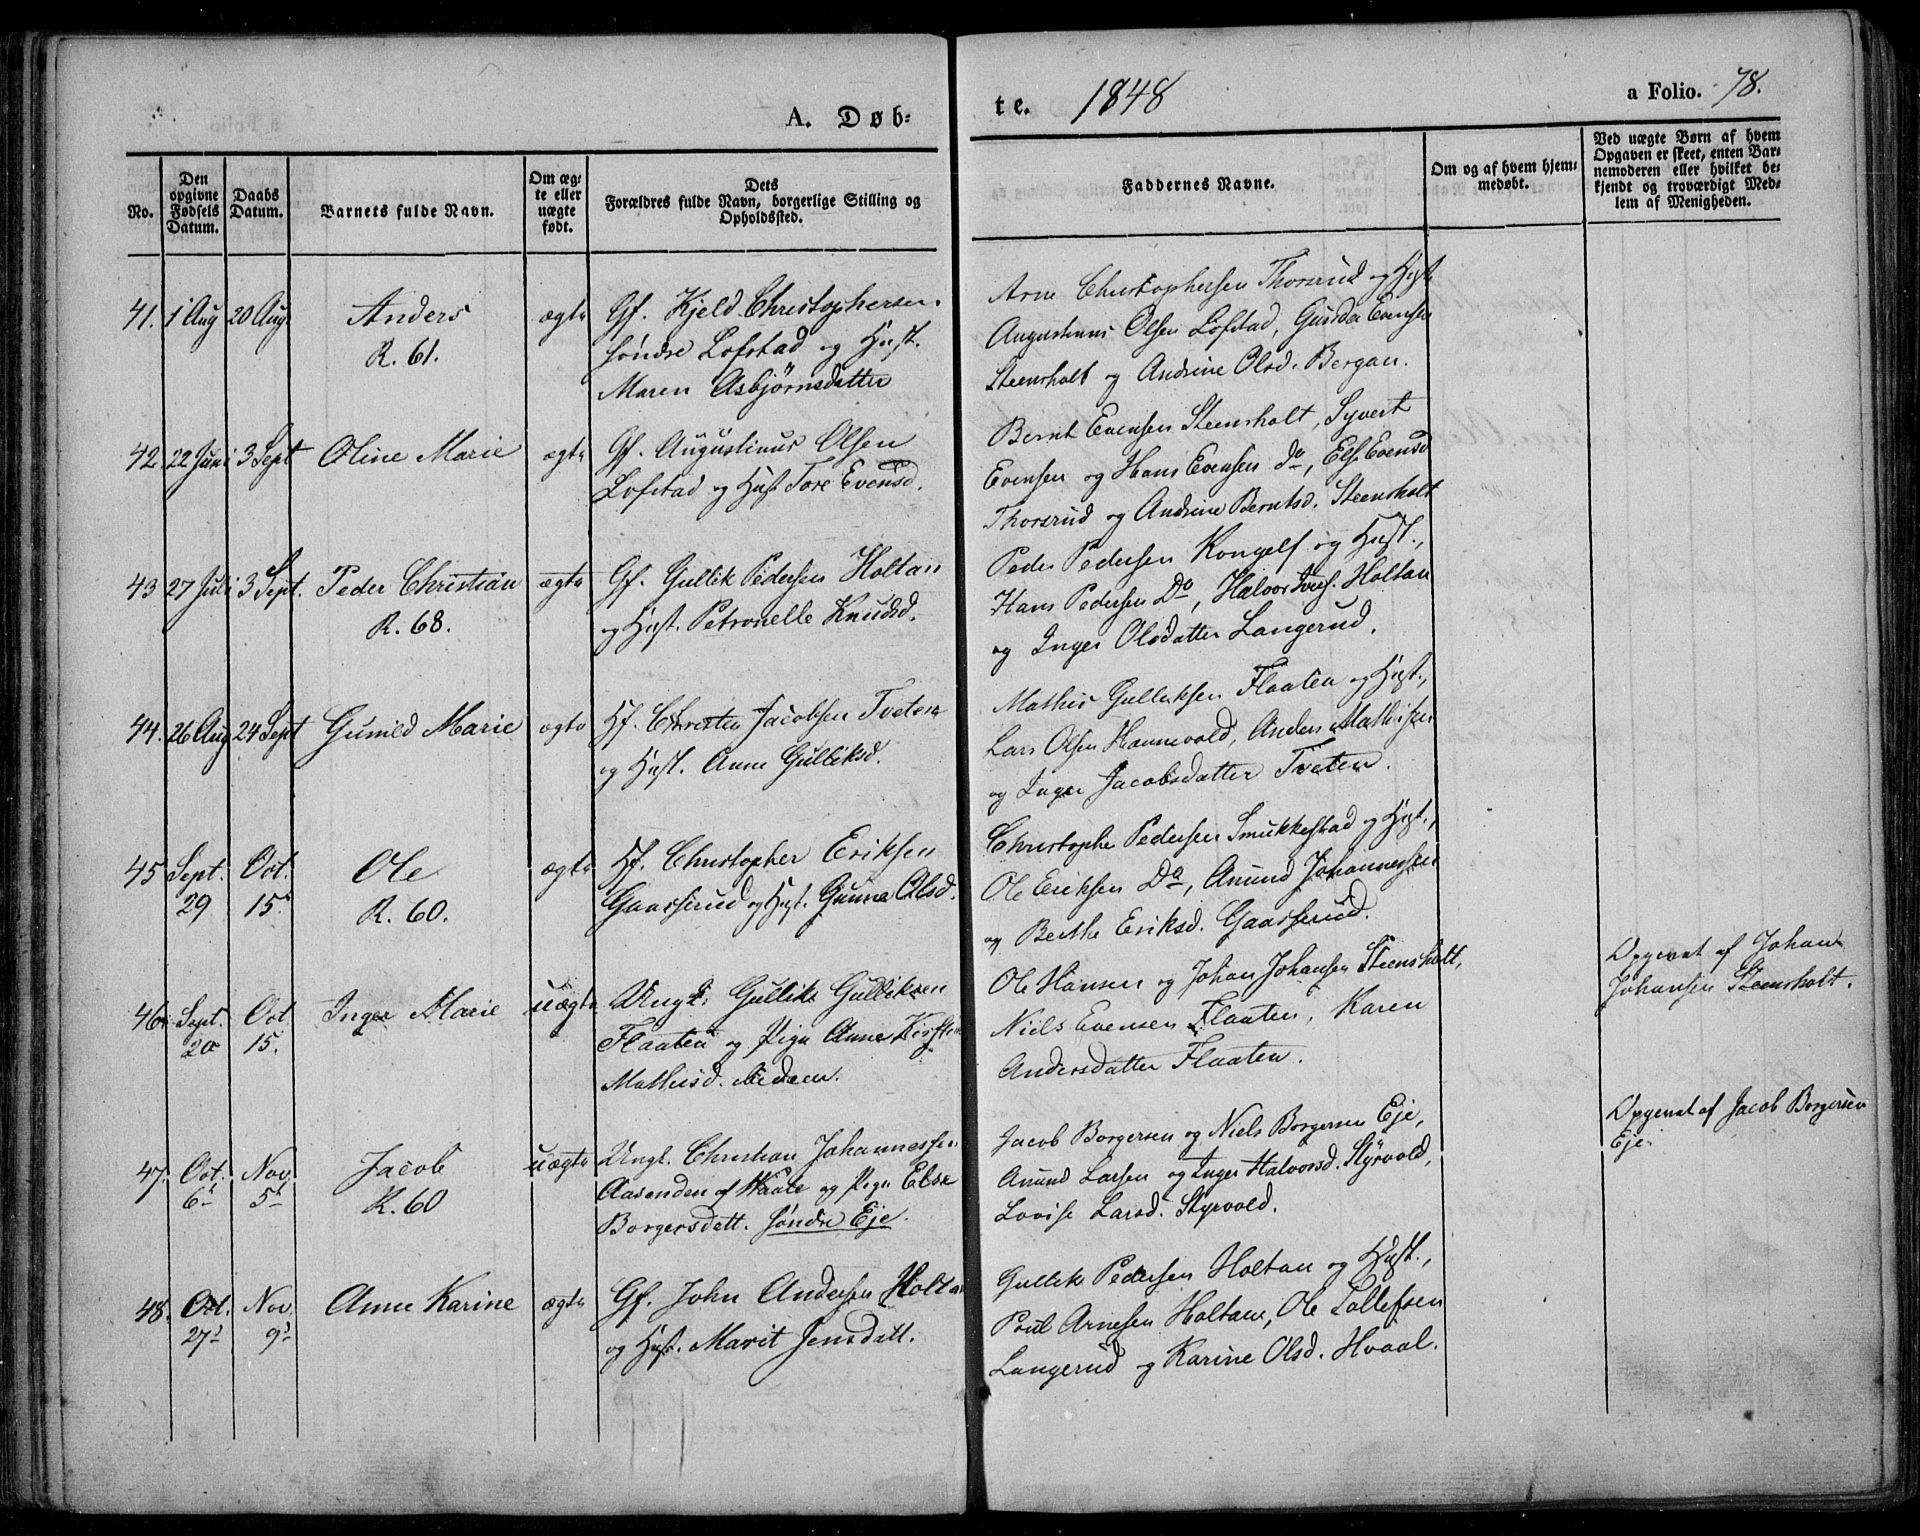 A. Døb-
te. 1848
a Folio. 78.
No.
Den opgivne Fødsels Datum.
Daabs Datum.
Barnets fulde Navn.
Om ægte eller uægte født.
Dets Forældres fulde Navn, borgerlige Stilling og Opholdssted.
Faddernes Navne.
Om og af hvem hjemmedøbt.
Ved uægte Børn af hvem Opgaven er skeet, enten Barnemoderen eller hvilket bekjendt og troværdigt Medlem af Menigheden.
41. 1 Aug 20 Aug. Anders ægte Gf. Kjeld Christophersen
R. 61. søndre Lofstad og Hust.
Maren Asbjørnsdatter
Arne Christophersen Thorsrud og Hust
Augustinus Olsen Lofstad, Gunda Evensen
Steensholt og Andrine Olsd. Bergan.
42 22 Juni 3 Sept Oline Marie ægte Gf. Augustinus Olsen
Lofstad og Hust Tore Evensd.
Bernt Evensen Steensholt, Syvert
Evensen og Hans Evensen Do, Else Evensd
Thorsrud og Andrine Berntsd. Steensholt
43 27 Juli 3 Sept. Peder Christian ægte Gf. Gullik Pedersen Holtan
R. 68. og Hust. Petronelle Knudsd.
Peder Pedersen Kongelf og Hust.,
Hans Pedersen Do, Halvor Ivers. Holtan
og Inger Olsdatter Langerud.
44. 26 Aug 24 Sept Gunild Marie ægte Hf. Christen Jacobsen Tveten
og Hust. Anne Gulliksd.
Mathis Gulliksen Flaaten og Hust.,
Lars Olsen Hannevold, Anders Mathisen
og Inger Jacobsdatter Tveten.
45 Sept. Oct. Ole ægte Hf. Christopher Eriksen
29 15. R. 60. Gaasserud og Hust. Gunna Olsd.
Christophe Pedersen Smukkestad og Hust.,
Ole Eriksen Do, Anund Johannessen
og Berthe Eriksd. Gaasserud.
46. Sept. Oct Inger Marie uægte Ungk. Gullik Gulliksen
20 15. Flaaten og Pige Anne Kirstine
Mathisd. ibidem.
Ole Hansen og Johan Johansen Steensholt,
Niels Evensen Flaaten, Karen
Andersdatter Flaaten.
Opgivet af Johan
Johansen Steensholt.
47. Oct. Nov. Jacob uægte Ungk. Christian Johannessen
6t 5t R. 60 Aasenden af Waale og Pige Else
Borgersdatt. søndre Eje.
Jacob Borgersen og Niels Borgersen Eje,
Anund Larsen og Inger Halvorsd. Styrvold,
Lovise Larsd. Styrvold.
Opgivet af Jacob Borgersen
Eje.
48. Oct. Nov. Anne Karine ægte Gf. John Andersen Holtan
27d 9d og Hust. Marit Jensdatt.
Gullik Pedersen Holtan og Hust.,
Poul Arnesen Holtan, Ole Tollefsen
Langerud og Karine Olsd. Hvaal.